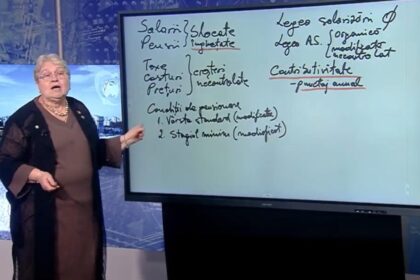 Salarii
Pensii
blocate
înghețate
Taxe
Costuri
Prețuri
creșteri
necontrolate
Condiții de pensionare
1. Vârsta standard (modificată)
2. Stagiul minim (modificat)
Legea salarizării
Legea AS.
organică
modificată
necontrolat
Contributivitate
- punctaj annual